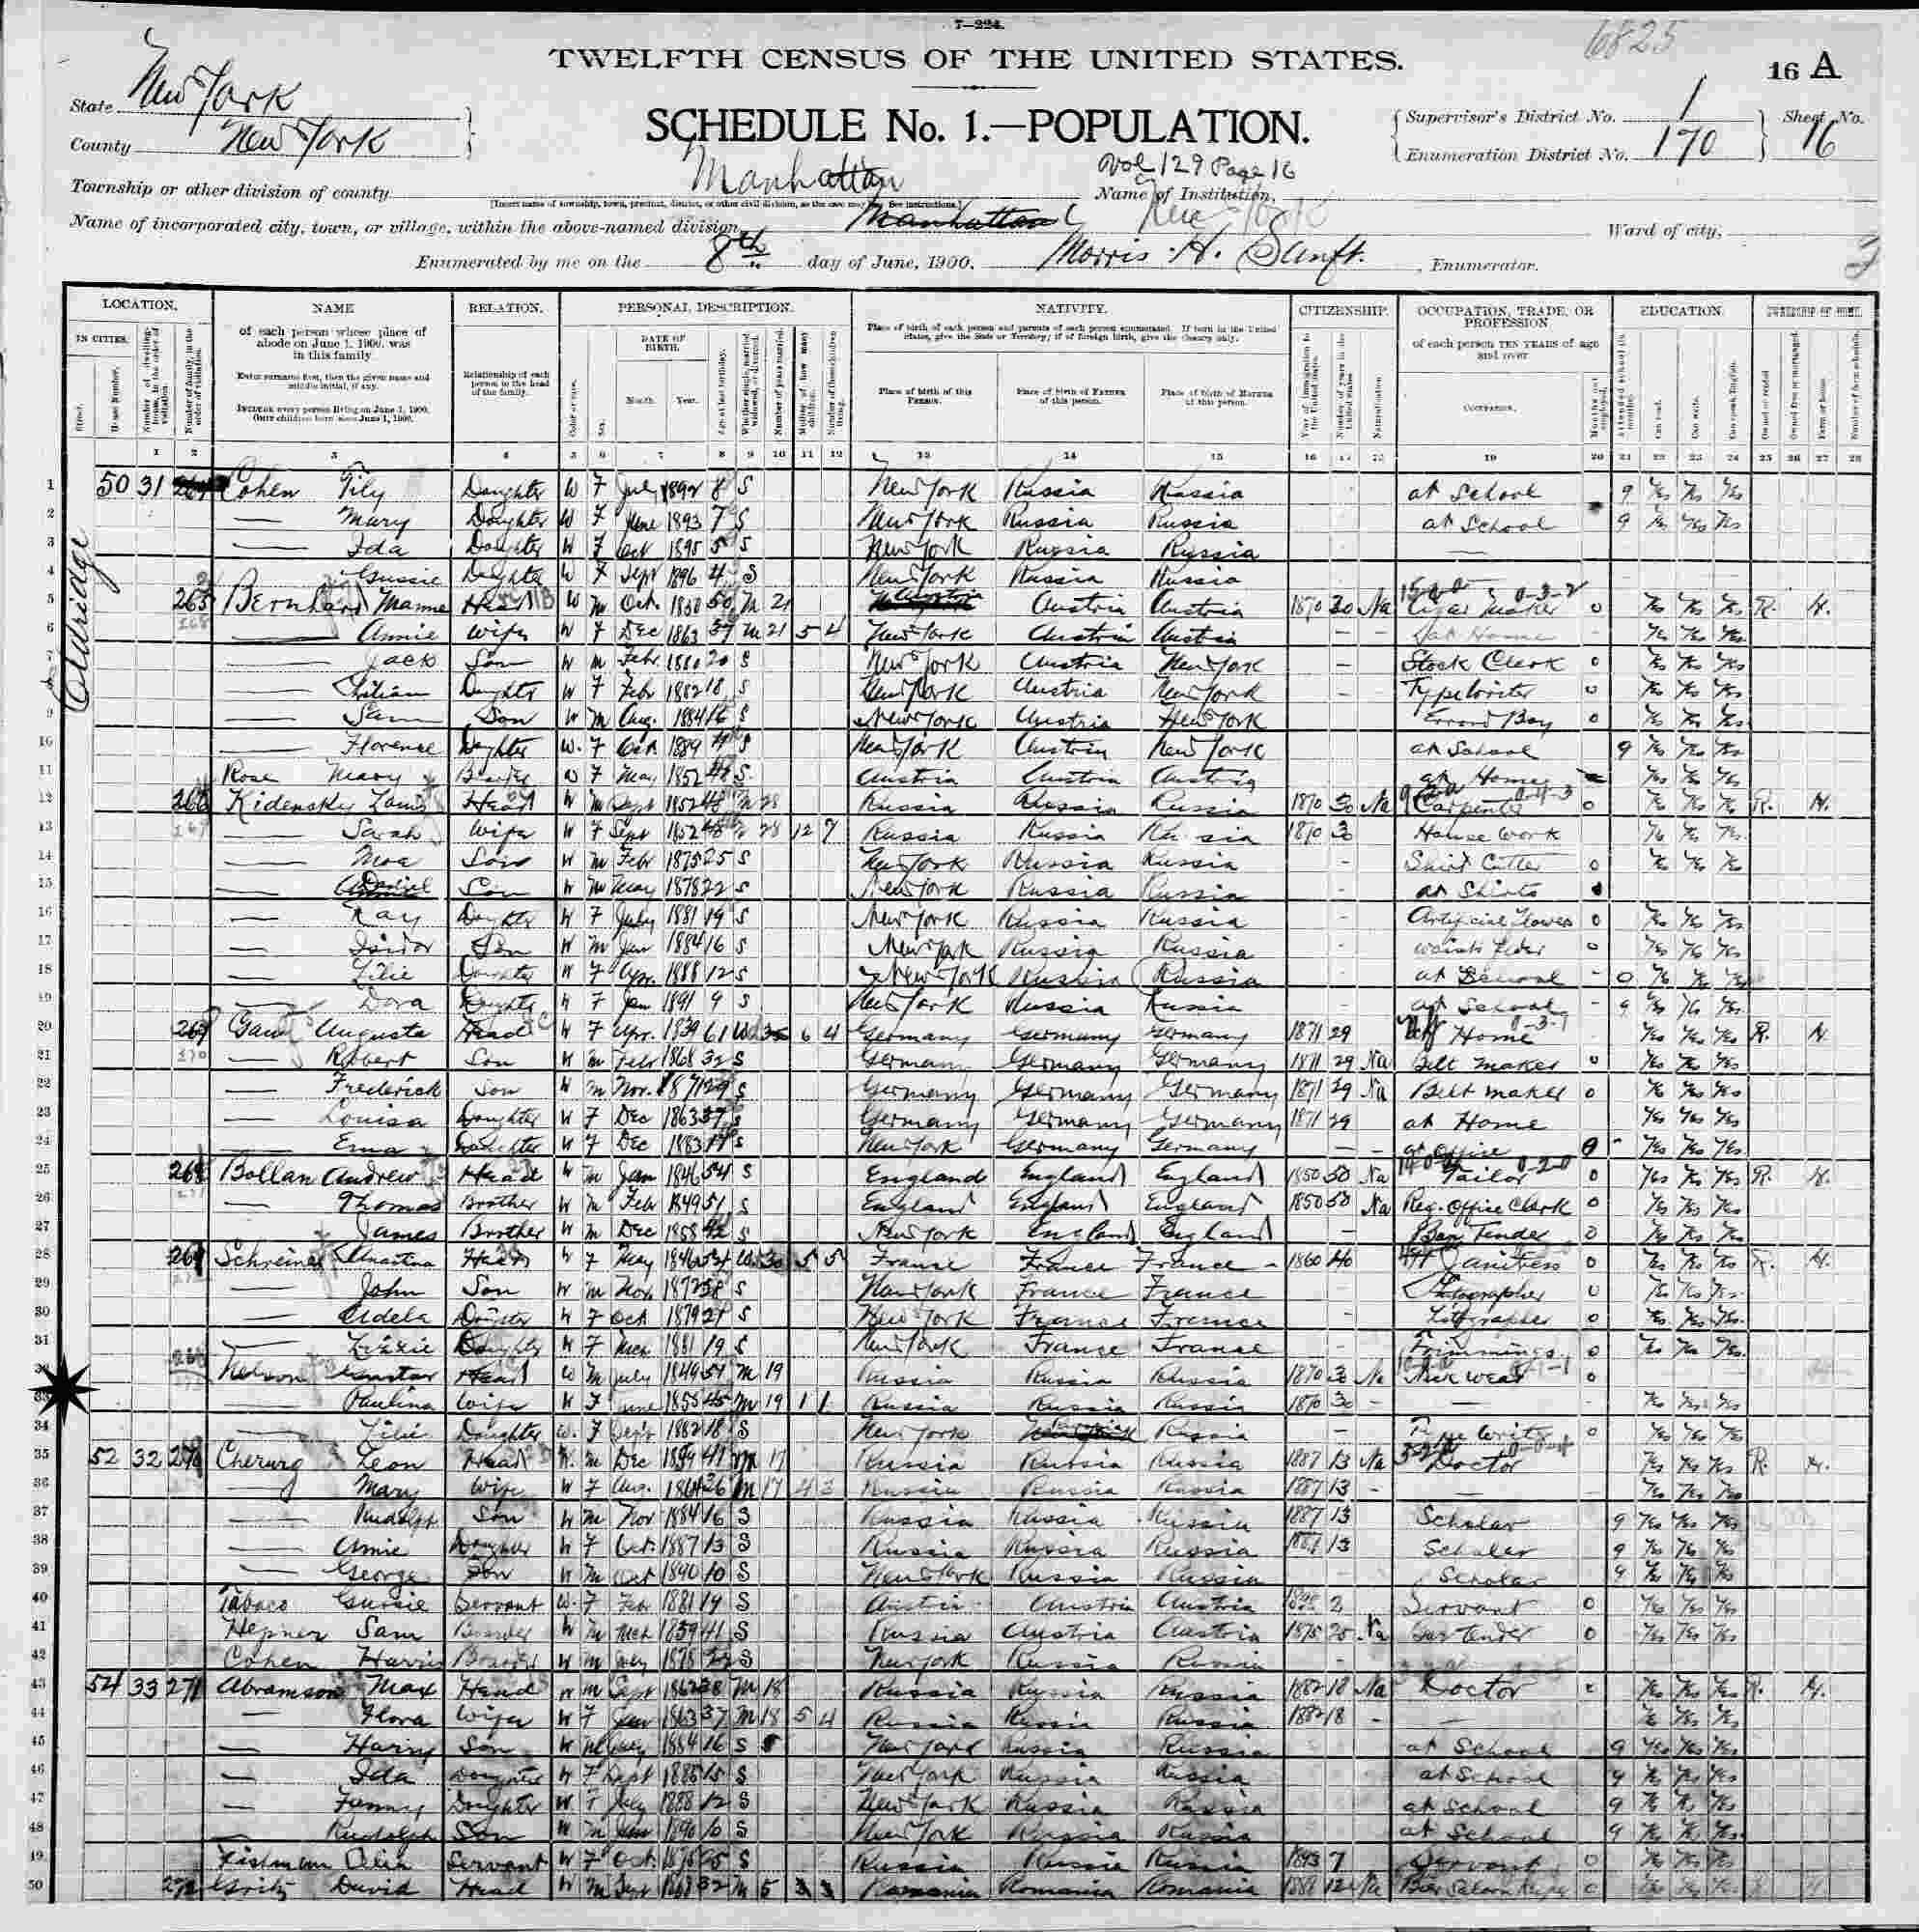 7—224.
6825
TWELFTH CENSUS OF THE UNITED STATES.
16 A
State New York
County New York
SCHEDULE No. 1.—POPULATION.
Supervisor's District No. 1
Enumeration District No. 170
Sheet No. 16
Vol 129 Page 16
Township or other division of county Manhattan
Name of Institution,
[Insert name of township, town, precinct, district, or other civil division, as the case may be. See instructions.]
Name of incorporated city, town, or village, within the above-named division, Manhattan New York
Ward of city,
Enumerated by me on the 8th day of June, 1900, Morris H. Sanft. , Enumerator.
LOCATION. NAME RELATION. PERSONAL DESCRIPTION. NATIVITY. CITIZENSHIP. OCCUPATION, TRADE, OR PROFESSION EDUCATION. OWNERSHIP OF HOME.
IN CITIES. of each person whose place of abode on June 1, 1900, was in this family. Relationship of each person to the head of the family. DATE OF BIRTH. Place of birth of each person and parents of each person enumerated. If born in the United States, give the State or Territory; if of foreign birth, give the Country only. of each person TEN YEARS of age and over.
Enter surname first, then the given name and middle initial, if any.
INCLUDE every person living on June 1, 1900. OMIT children born since June 1, 1900.
Street. House Number. Month. Year. Place of birth of this PERSON. Place of birth of FATHER of this person. Place of birth of MOTHER of this person. OCCUPATION.
1 2 3 4 5 6 7 8 9 10 11 12 13 14 15 16 17 18 19 20 21 22 23 24 25 26 27 28
Eldridge
1 50 31 Cohen Tily Daughter W F July 1892 8 S New York Russia Russia at School 9 Yes Yes Yes
2 Mary Daughter W F June 1893 7 S New York Russia Russia at School 9 Yes Yes Yes
3 Ida Daughter W F Oct 1895 5 S New York Russia Russia
4 Gussie Daughter W F Sept 1896 4 S New York Russia Russia
5 265 Bernhard Head W M Oct. 1850 50 M 21 Austria Austria Austria 1870 30 Na Cigar Maker 0 Yes Yes Yes R. H.
6 Annie Wife W F Dec 1863 37 M 21 5 4 New York Austria Austria at Home Yes Yes Yes
7 Jack Son W M Febr 1880 20 S New York Austria New York Stock Clerk 0 Yes Yes Yes
8 Lilian Daughter W F Febr 1882 18 S New York Austria New York Type Writer 0 Yes Yes Yes
9 Sam Son W M Aug. 1884 16 S New York Austria New York Errand Boy 0 Yes Yes Yes
10 Florence Daughter W. F Oct 1889 11 S New York Austria New York at School 9 Yes Yes Yes
11 Rose Mary W F May 1852 48 S. Austria Austria Austria at Home Yes Yes Yes
12 266 Kidensky Louis Head W M Sept 1852 48 M 28 Russia Russia Russia 1870 30 Na Carpenter 0 Yes Yes Yes R. H.
13 Sarah Wife W F Sept 1852 48 28 12 7 Russia Russia Russia 1870 30 House Work Yes Yes Yes
14 Moe Son W M Febr 1875 25 S New York Russia Russia Shirt Cutter 0 Yes Yes Yes
15 Daniel Son W M May 1878 22 S New York Russia Russia at Shirts
16 Ray Daughter W F July 1881 19 S New York Russia Russia Artificial Flowers 0 Yes Yes Yes
17 Isidor Son W M Jan 1884 16 S New York Russia Russia 0 Yes Yes Yes
18 Lilie Daughter W F Apr. 1888 12 S New York Russia Russia at School 0 Yes Yes Yes
19 Dora Daughter W F Jan 1891 9 S New York Russia Russia at School 9 Yes Yes Yes
20 267 Augusta Head W F Apr. 1839 61 Wd 6 4 Germany Germany Germany 1871 29 at Home Yes Yes Yes R. H.
21 Robert Son W M Febr 1868 32 S Germany Germany Germany 1871 29 Na Belt maker 0 Yes Yes Yes
22 Frederick Son W M Nov. 1871 29 S Germany Germany Germany 1871 29 Na Belt maker 0 Yes Yes Yes
23 Louisa Daughter W F Dec 1863 37 S Germany Germany Germany 1871 29 at Home Yes Yes Yes
24 Emma Daughter W F Dec 1883 17 S New York Germany Germany at Office 0 Yes Yes Yes
25 268 Bollan Andrew Head W M Jan 1846 54 S England England England 1850 50 Na Tailor 0 Yes Yes Yes R. H.
26 Thomas Brother W M Febr 1849 51 S England England England 1850 50 Na Reg. Office Clerk 0 Yes Yes Yes
27 James Brother W M Dec 1858 42 S New York England England Bar Tender 0 Yes Yes Yes
28 269 Schreiner Head W F May 1846 54 Wd 30 5 5 France France France 1860 40 Janitress 0 Yes Yes Yes R. H.
29 John Son W M Nov. 1872 28 S New York France France Photographer 0 Yes Yes Yes
30 Adela Daughter W F Oct 1879 21 S New York France France Litographer 0 Yes Yes Yes
31 Lizzie Daughter W F Mch 1881 19 S New York France France Trimmings 0 Yes Yes Yes
32 Nelson Gustav Head W M July 1849 51 M 19 Russia Russia Russia 1870 30 Na Neck wear 0
33 Paulina Wife W F June 1855 45 M 19 1 1 Russia Russia Russia 1870 30 Yes Yes Yes
34 Lilie Daughter W. F Sept 1882 18 S New York Russia Russia Type Writer 0 Yes Yes Yes
35 52 32 270 Leon Head W. M Dec 1859 41 M 17 Russia Russia Russia 1887 13 Na Doctor Yes Yes Yes R. H.
36 Mary Wife W F Aug. 1864 36 M 17 4 3 Russia Russia Russia 1887 13 Yes Yes Yes
37 Rudolph Son W M Nov 1884 16 S Russia Russia Russia 1887 13 Scholar 9 Yes Yes Yes
38 Annie Daughter W F Oct. 1887 13 S Russia Russia Russia 1887 13 Scholar 9 Yes Yes Yes
39 George Son W M Oct 1890 10 S New York Russia Russia Scholar 9 Yes Yes Yes
40 Tabaco Gussie Servant W. F Febr 1881 19 S Austria Austria Austria 1898 2 Servant 0 Yes Yes Yes
41 Hepner Sam Boarder W M Mch 1859 41 S Russia Austria Austria 1875 25 Na Bartender 0 Yes Yes Yes
42 Cohen Harris Boarder W M July 1878 22 S New York Russia Russia
43 54 33 271 Abramson Max Head W M Sept 1862 38 M 18 Russia Russia Russia 1882 18 Na Doctor Yes Yes Yes R. H.
44 Flora Wife W F Jan 1863 37 M 18 5 4 Russia Russia Russia 1882 18 Yes Yes Yes
45 Harry Son W M 1884 16 S New York Russia Russia at School 9 Yes Yes Yes
46 Ida Daughter W F Sept 1885 15 S New York Russia Russia at School 9 Yes Yes Yes
47 Fanny Daughter W F July 1888 12 S New York Russia Russia at School 9 Yes Yes Yes
48 Rudolph Son W M Jan 1890 10 S New York Russia Russia at School 9 Yes Yes Yes
49 Fishman Servant W F Oct. 1875 25 S Russia Russia Russia 1893 7 Servant 0 Yes Yes Yes
50 272 David Head W M Sept 1868 32 M 5 Romania Romania Romania 1888 12 Na Beer Saloon Keeper 0 Yes Yes Yes